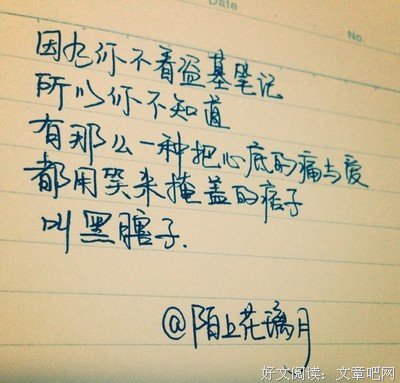 Date
因为你不看盗墓笔记.
所以你不知道
有那么一种把心底的痛与爱
都用笑来掩盖的痞子
叫黑瞎子.
@陌上花璃月
好文阅读：文章吧网